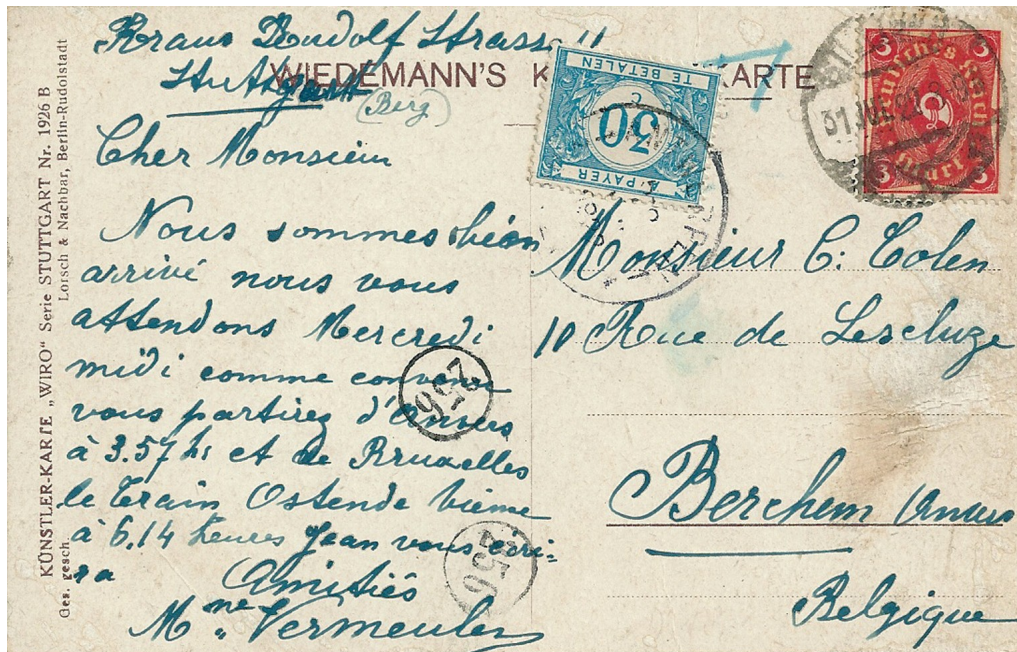 Kraus Rudolf Strasse 11
Stuttgart
(Berg)
WIEDEMANN'S K ARTE
Cher Monsieur
Nous sommes bien
arrivé nous vous
attendons Mercredi
midi comme convenu
vous partirez d'Anvers
à 3.57 hs et de Bruxelles
le train Ostende Vienne
à 6.14 heures Jean vous écri-
ra
Amitiés
Mme Vermeulen
TE BETALEN
30
C
A PAYER
Deutsches Reich
3 3
3 Mark 3
31 JUL
Monsieur C. Colen
10 Rue de Lescluze
Berchem (Anvers
Belgique
256
256
KÜNSTLER-KARTE „WIRO" Serie STUTTGART Nr. 1926 B
Ges. gesch. Lorsch & Nachbar, Berlin-Rudolstadt